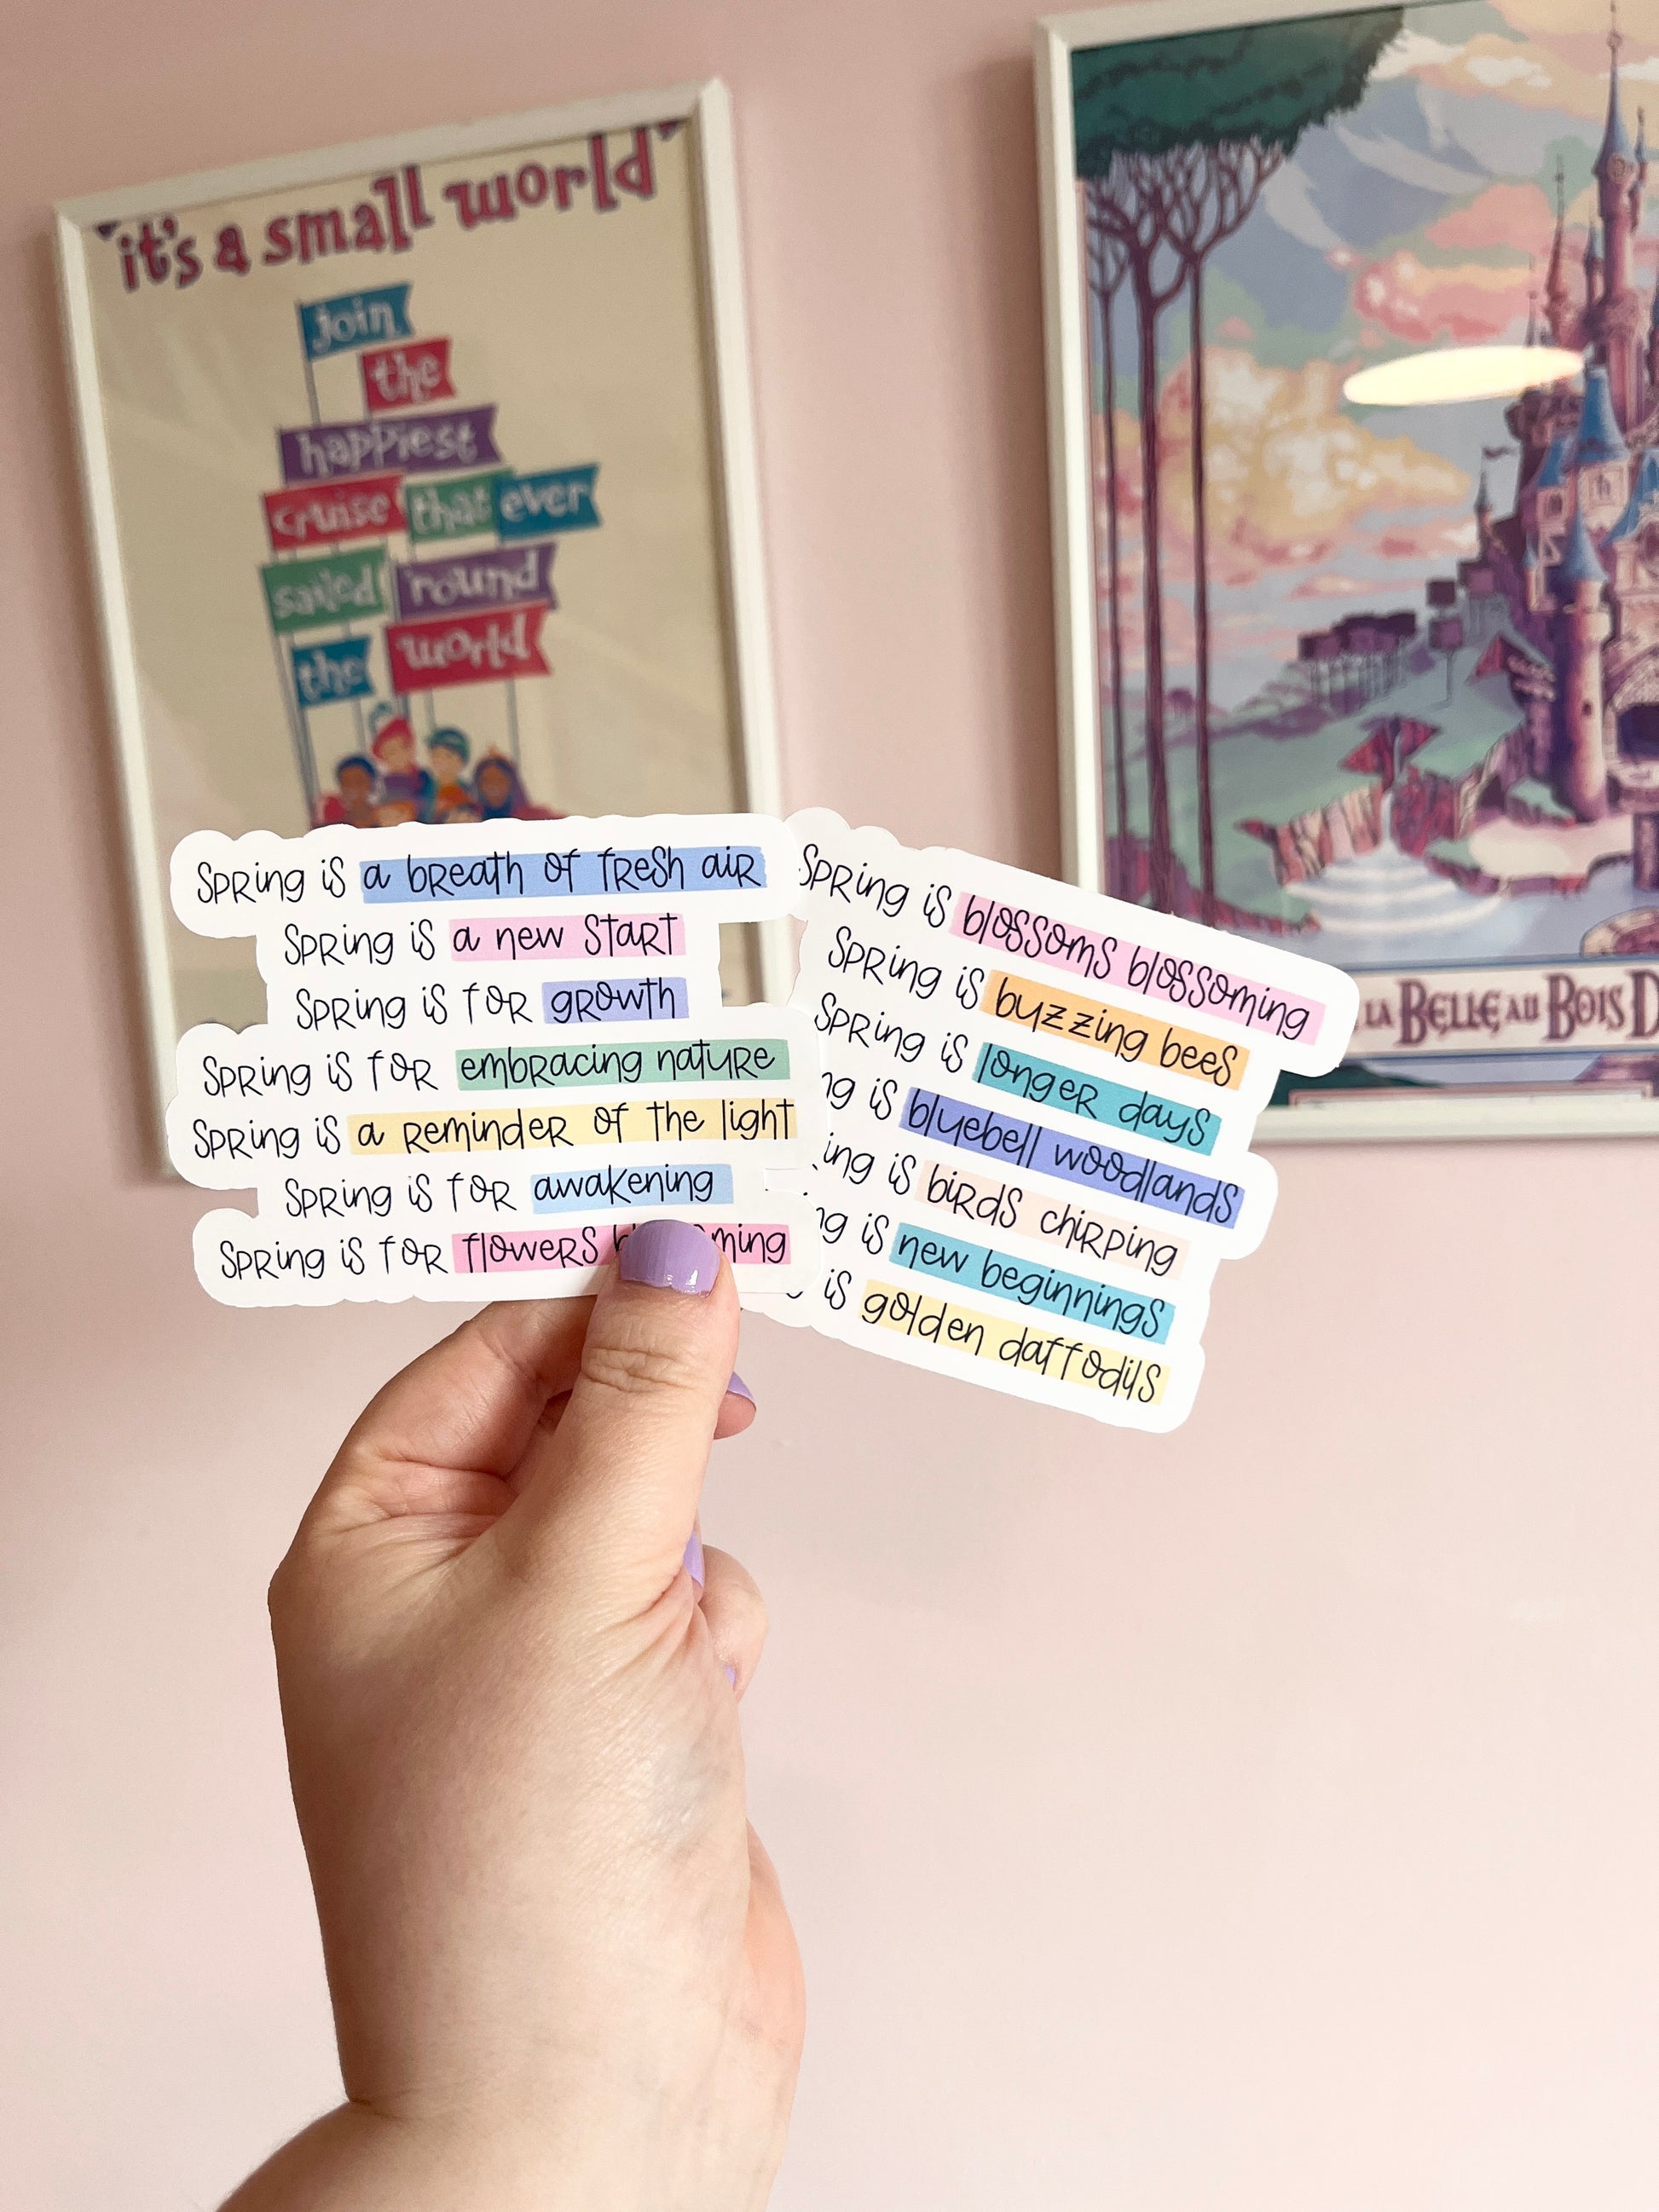 "it's a small world"
join
the
happiest
cruise that ever
sailed 'round
the world
LA BELLE AU BOIS D
Spring is a breath of fresh air
Spring is a new start
Spring is for growth
Spring is for embracing nature
Spring is a reminder of the light
Spring is for awakening
Spring is for flowers b ming
Spring is blossoms blossoming
Spring is buzzing bees
Spring is longer days
ng is bluebell woodlands
ing is birds chirping
ng is new beginnings
is golden daffodils